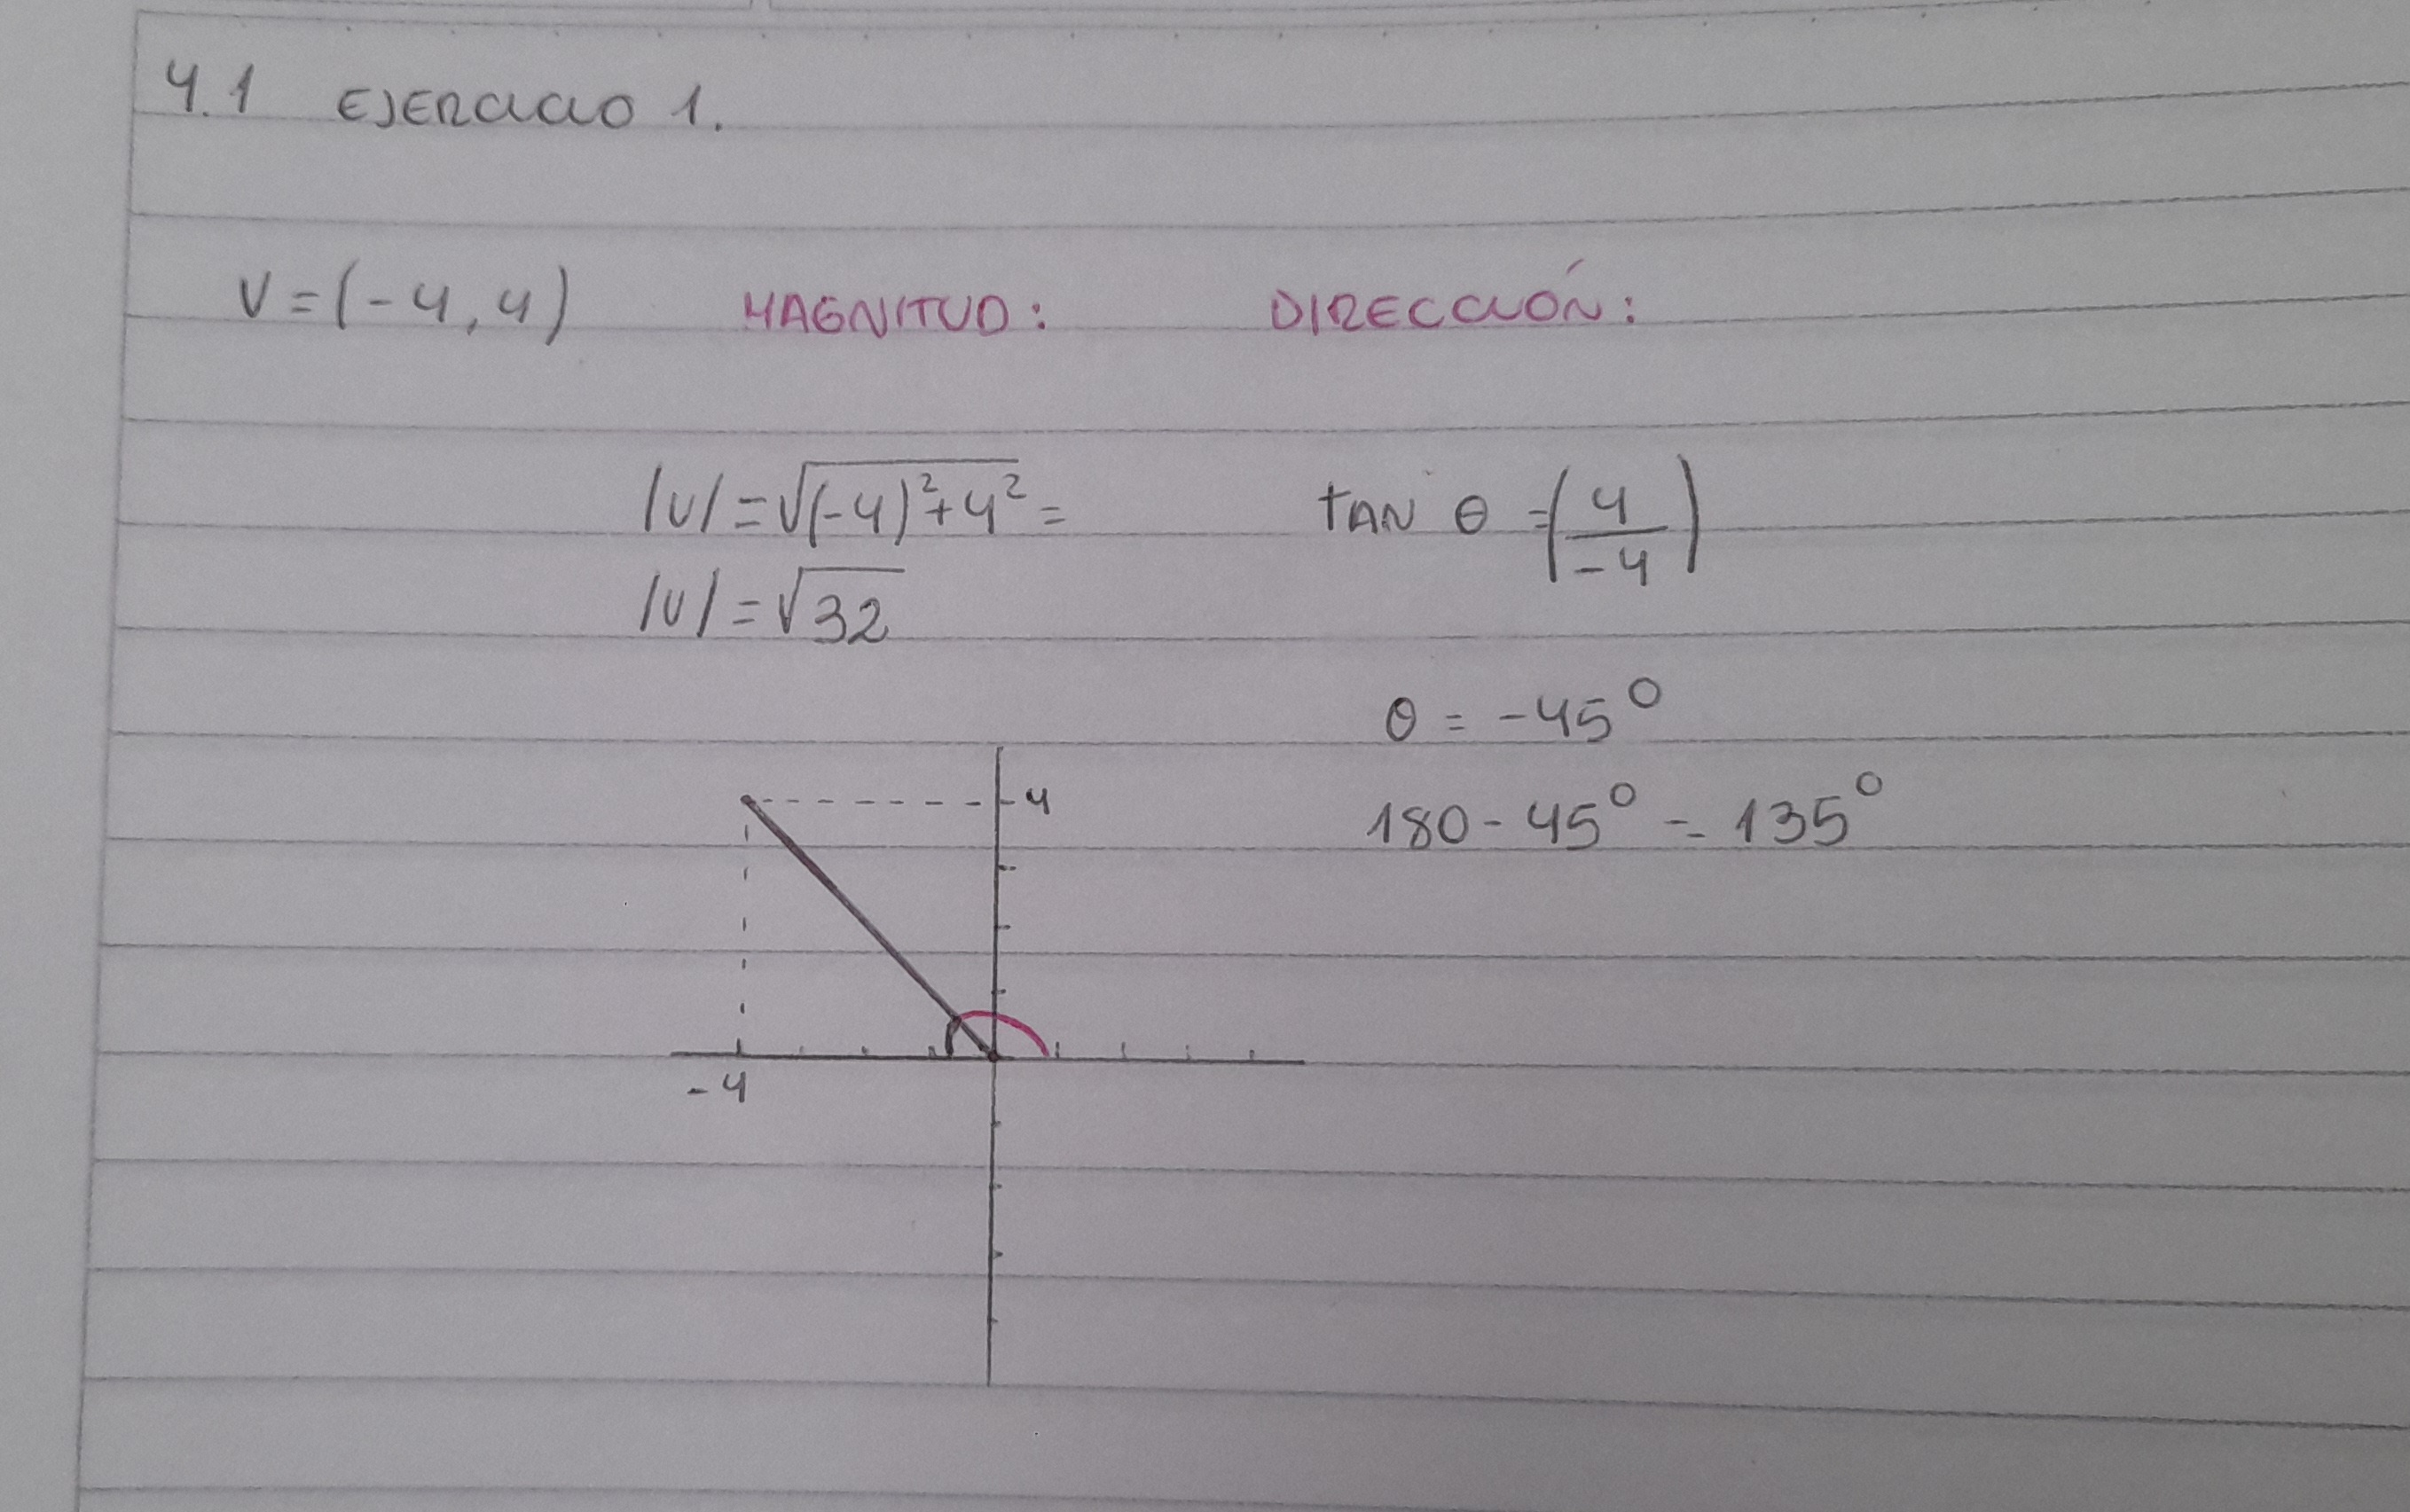 4.1 EJERCICIO 1.
V = (-4, 4) MAGNITUD: DIRECCIÓN:
|V| = √(-4)²+4² = TAN θ = (4/-4)
|V| = √32
θ = -45°
180 - 45° = 135°
4
-4